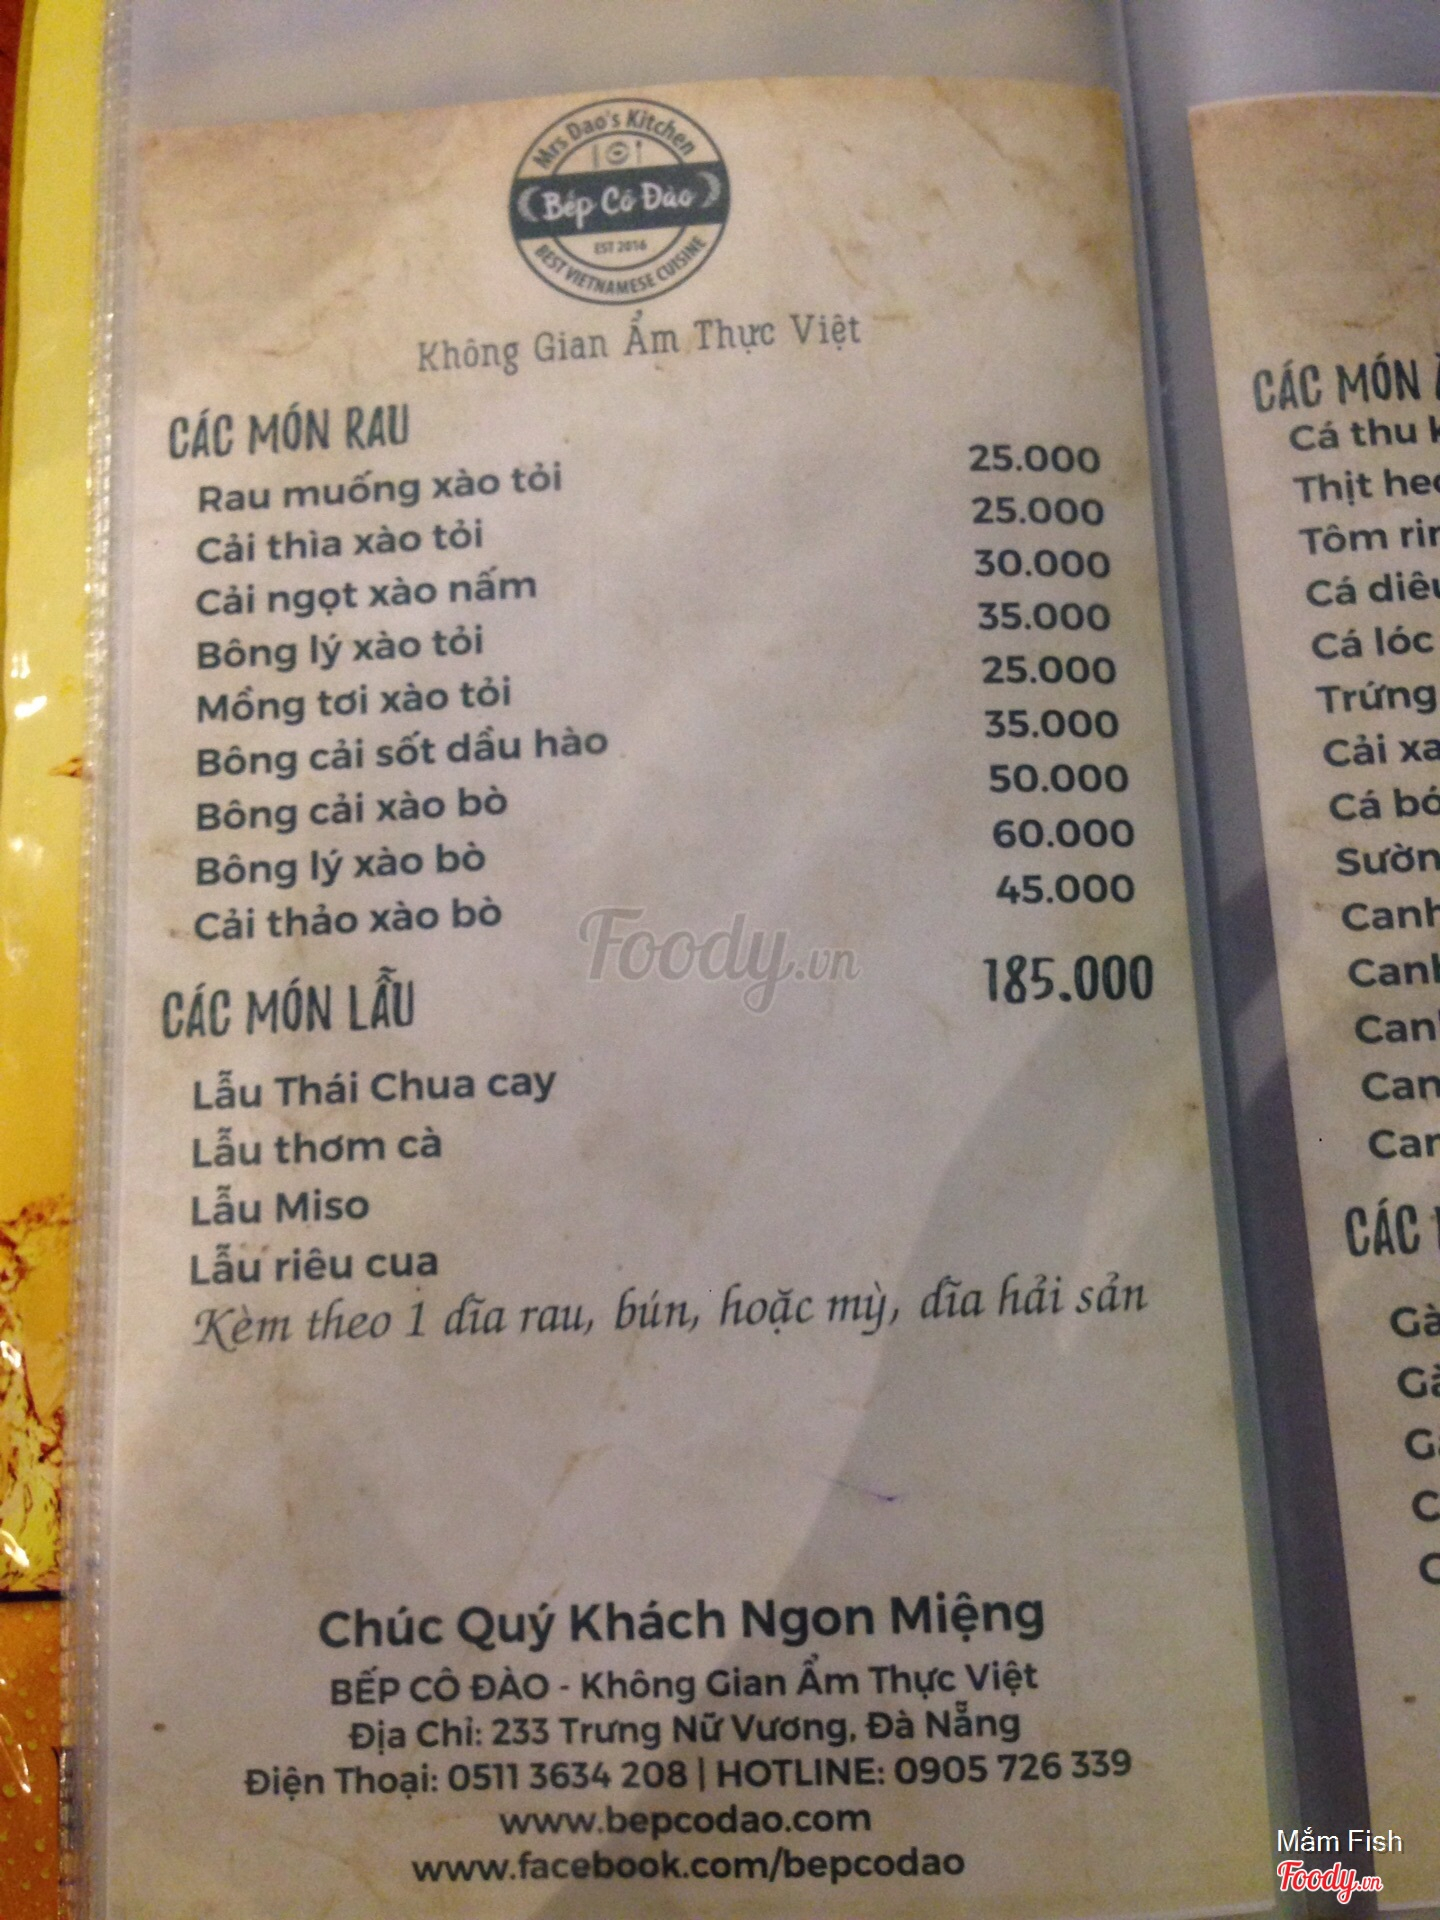 Mrs Dao's Kitchen
Bếp Cô Đào
EST 2016
BEST VIETNAMESE CUISINE
Không Gian Ẩm Thực Việt
CÁC MÓN RAU
Rau muống xào tỏi 25.000
Cải thìa xào tỏi 25.000
Cải ngọt xào nấm 30.000
Bông lý xào tỏi 35.000
Mồng tơi xào tỏi 25.000
Bông cải sốt dầu hào 35.000
Bông cải xào bò 50.000
Bông lý xào bò 60.000
Cải thảo xào bò 45.000
CÁC MÓN LẪU 185.000
Lẫu Thái Chua cay
Lẫu thơm cà
Lẫu Miso
Lẫu riêu cua
Kèm theo 1 dĩa rau, bún, hoặc mỳ, dĩa hải sản
Chúc Quý Khách Ngon Miệng
BẾP CÔ ĐÀO - Không Gian Ẩm Thực Việt
Địa Chỉ: 233 Trưng Nữ Vương, Đà Nẵng
Điện Thoại: 0511 3634 208 | HOTLINE: 0905 726 339
www.bepcodao.com
www.facebook.com/bepcodao
CÁC MÓN
Cá thu
Thịt
Tôm
Cá
Cá lóc
Trứng
Cải
Cá
Sườn
CÁC
Foody.vn
Mắm Fish
Foody.vn